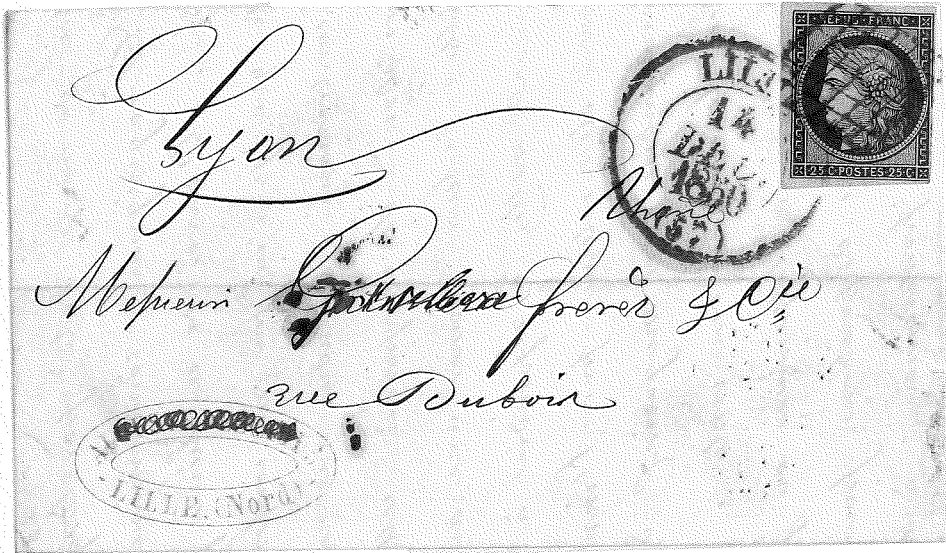 REPUB·FRANC·
25 C POSTES 25 C
LILLE
14
DEC.
1850
(57)
Lyon
Rhône
Messieurs frères & Cie
rue Dubois
LILLE. (Nord)